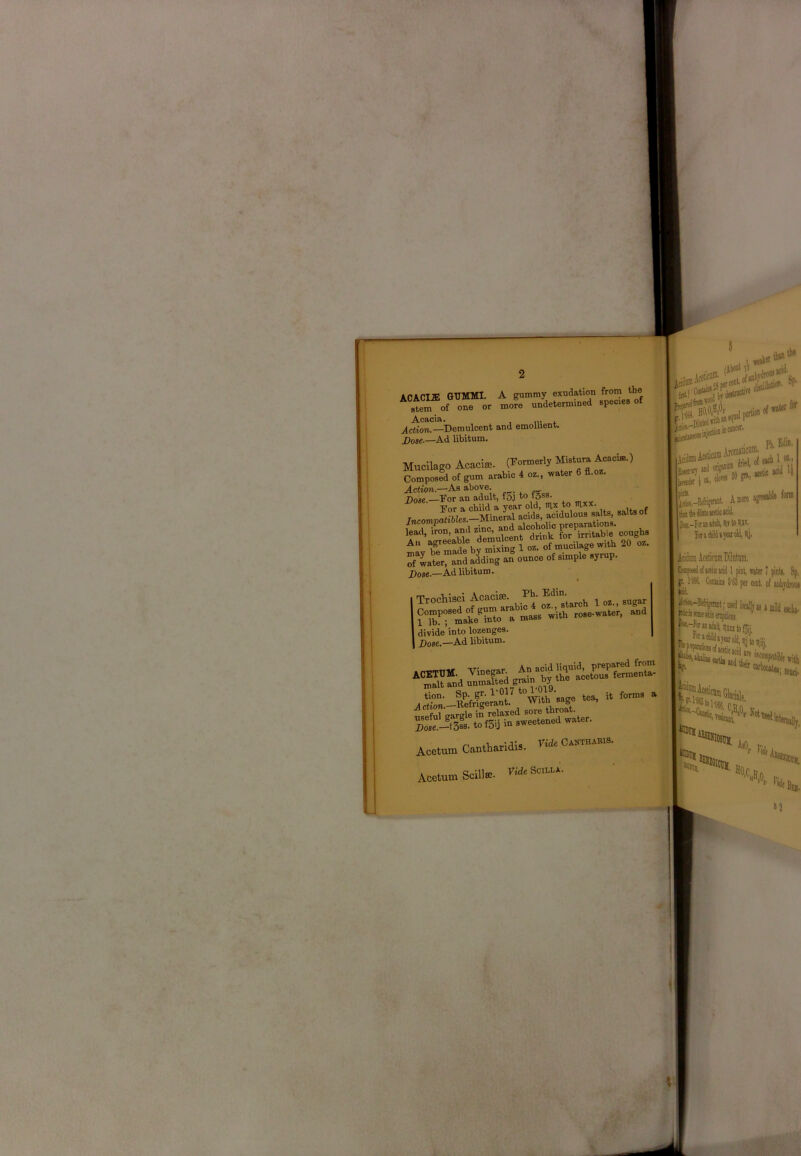 2
ACACIÆ GUMMI. A gummy exudation from the
stem of one or more undetermined species of
Acacia.
Action.—Demulcent and emollient.
Dose.—Ad libitum.
Mucilago Acaciæ. (Formerly Mistura Acaciæ.)
Composed of gum arabic 4 oz., water 6 fl.oz.
Action.—As above.
Dose.—For an adult, fʒj to f℥ss.
For a child a year old, ♏x to ♏xx.
Incompatibles.—Mineral acids, acidulous salts, salts of
lead, iron, and zinc, and alcoholic preparations.
An agreeable demulcent drink for irritable coughs
may be made by mixing 1 oz. of mucilage with 20 oz.
of water, and adding an ounce of simple syrup.
Dose.—Ad libitum.
Trochisci Acaciæ. Ph. Edin.
Composed of gum arabic 4 oz., starch 1 oz., sugar
1 lb.; make into a mass with rose-water, and
divide into lozenges.
Dose.—Ad libitum.
ACETUM. Vinegar. An acid liquid, prepared from
malt and unmalted grain by the acetous fermenta-
tion. Sp. gr. 1·017 to 1·019.
Action.—Refrigerant. With sage tea, it forms a
useful gargle in relaxed sore throat.
Dose.—fʒss. to fʒij in sweetened water.
Acetum Cantharidis. Vide CANTHARIS.
Acetum Scillæ. Vide SCILLA.
3
Acidum Aceticum. (About weaker than the
Contains 28 per cent. of anhydrous acid. Sp.
by destructive distillation.
with an equal portion of water for
injection in cancer.
Acidum Aceticum Aromaticum. Ph. Edin.
Rosemary and origanum dried, of each 1 oz.,
lavender ½ oz., cloves 30 grs., acetic acid 1½
pints.
Action.—Refrigerant. A more agreeable form
than the dilute acetic acid.
Dose.—For an adult,
For a child a year old, ♏j.
Acidum Aceticum Dilutum.
Composed of acetic acid 1 pint, water 7 pints. Sp.
gr. 1·006. Contains 3·63 per cent. of anhydrous
acid.
Action.—Refrigerant; used locally as a mild escha-
rotic in some skin eruptions.
Dose.—For an adult,
For a child a year old,
The preparations of acetic acid are incompatible with
alkalies, alkaline earths and their carbonates;
Acidum Aceticum Glaciale.
Action.—Caustic, vesicant. Not used internally.
ACIDUM ARSENIOSUM. Vide ARSENICUM.
ACIDUM BENZOICUM. Vide BEN-
B 2